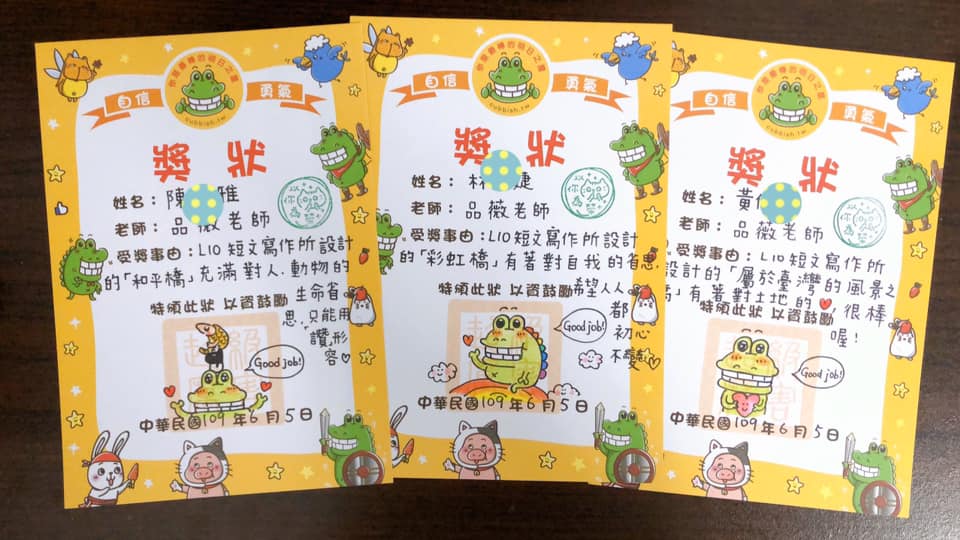 自信 勇氣
cubbish.tw
獎 狀
姓名：陳 雅
老師：品薇老師
受獎事由：L10短文寫作所設計
的「和平橋」充滿對人、動物的
生命省
思，只能用
讚形
容♡
特頒此狀 以資鼓勵
Good job!
中華民國109年6月5日
自信 勇氣
cubbish.tw
獎 狀
姓名：林 婕
老師：品薇老師
受獎事由：L10短文寫作所設計
的「彩虹橋」有著對自我的省思，
希望人人
都
初心
不變♡
特頒此狀 以資鼓勵
Good job!
中華民國109年6月5日
自信 勇氣
cubbish.tw
獎 狀
姓名：黃
老師：品薇老師
受獎事由：L10短文寫作所
設計的「屬於臺灣的風景之
橋」有著對土地的♥，很棒
喔！
特頒此狀 以資鼓勵
Good job!
中華民國109年6月5日